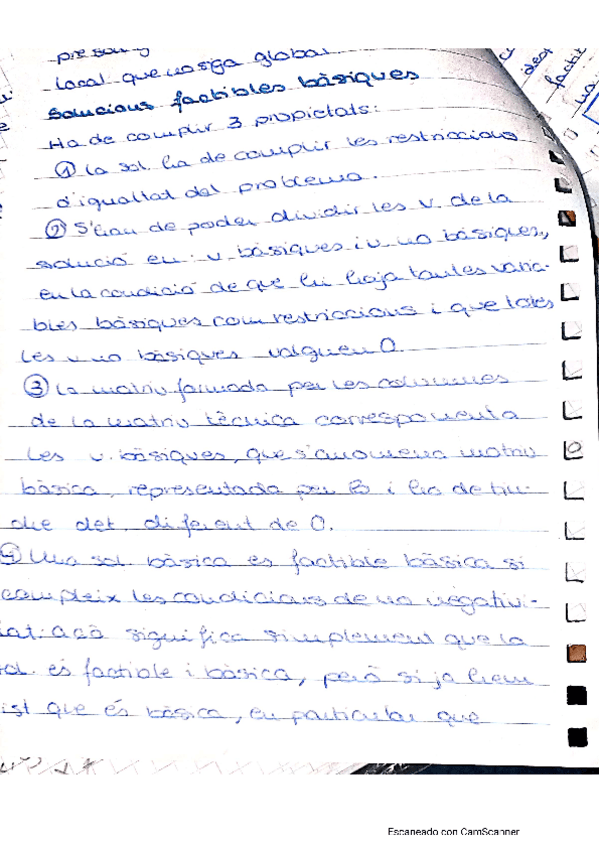 local que no siga global
Solucions factibles bàsiques
Ha de complir 3 propietats:
① La sol. ha de complir les restriccions
d'igualtat del problema.
② S'han de poder dividir les v. de la
solució en: v bàsiques i v. no bàsiques,
en la condició de que hi haja tantes varia-
bles bàsiques com restriccions i que totes
les v no bàsiques valguen 0.
③ La matriu formada per les columnes
de la matriu tècnica corresponent a
les v. bàsiques, que s'anomena matriu
bàsica, representada per B i ha de tin-
dre det. diferent de 0.
④ Una sol. bàsica es factible bàsica si
compleix les condicions de no negativi-
tat. açò significa simplement que la
sol. és factible i bàsica, però si ja hem
vist que és bàsica, en particular que
Escaneado con CamScanner